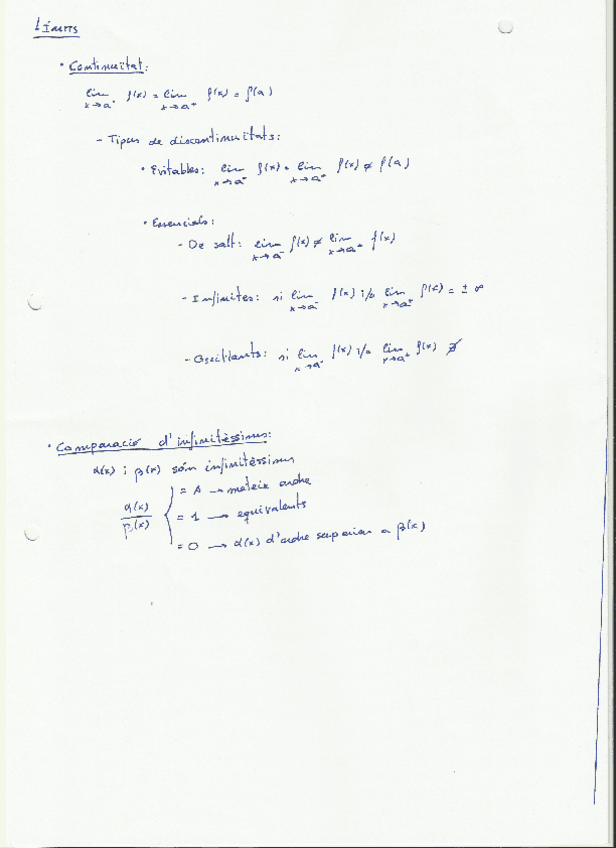 Límits
• Continuïtat:
lim x→a⁻ f(x) = lim x→a⁺ f(x) = f(a)
- Tipus de discontinuïtats:
• Evitables: lim x→a⁻ f(x) = lim x→a⁺ f(x) ≠ f(a)
• Essencials:
- De salt: lim x→a⁻ f(x) ≠ lim x→a⁺ f(x)
- Infinites: si lim x→a⁻ f(x) i/o lim x→a⁺ f(x) = ± ∞
- Oscil·lants: si lim x→a⁻ f(x) i/o lim x→a⁺ f(x) ∄
• Comparació d'infinitèssims:
α(x) i β(x) són infinitèssims
α(x)/β(x) { = A → mateix ordre
= 1 → equivalents
= 0 → α(x) d'ordre superior a β(x)